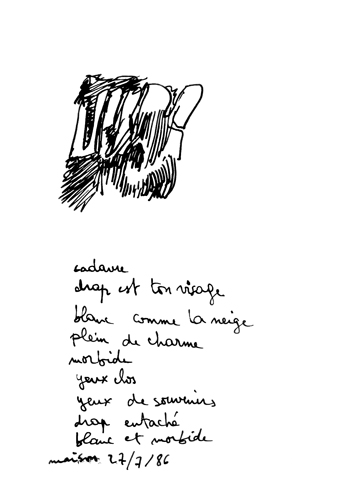 cadavre
drap est ton visage
blanc comme la neige
plein de charme
morbide
yeux clos
yeux de souvenirs
drap entaché
blanc et morbide
maison 27/7/86